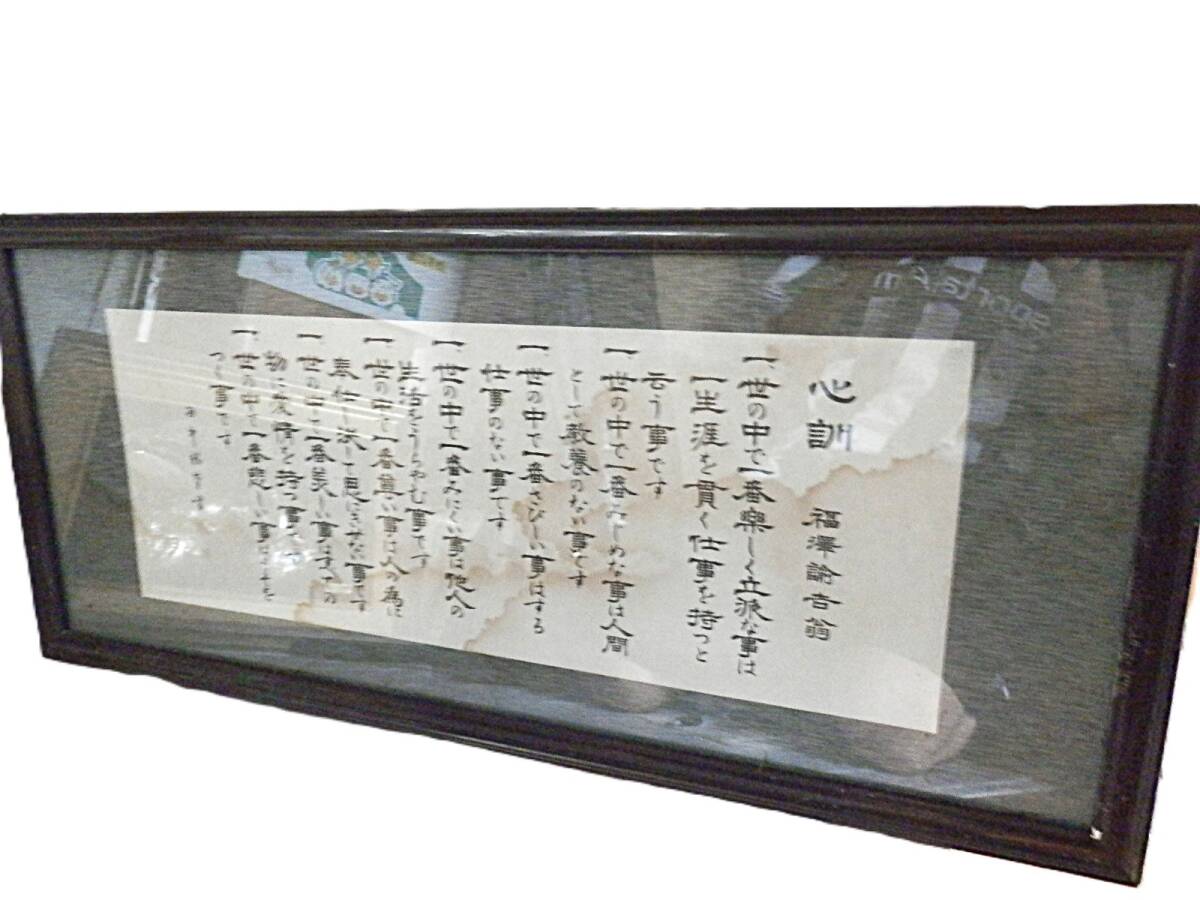 心訓　福澤諭吉翁
一、世の中で一番樂しく立派な事は
一生涯を貫く仕事を持つと
云う事です
一、世の中で一番みじめな事は人間
として教養のない事です
一、世の中で一番さびしい事はする
仕事のない事です
一、世の中で一番みにくい事は他人の
生活をうらやむ事です
一、世の中で一番尊い事は人の為に
奉仕し決して恩にきせない事です
一、世の中で一番美しい事はすべての
物に愛情を持つ事です
一、世の中で一番悲しい事はうそを
つく事です